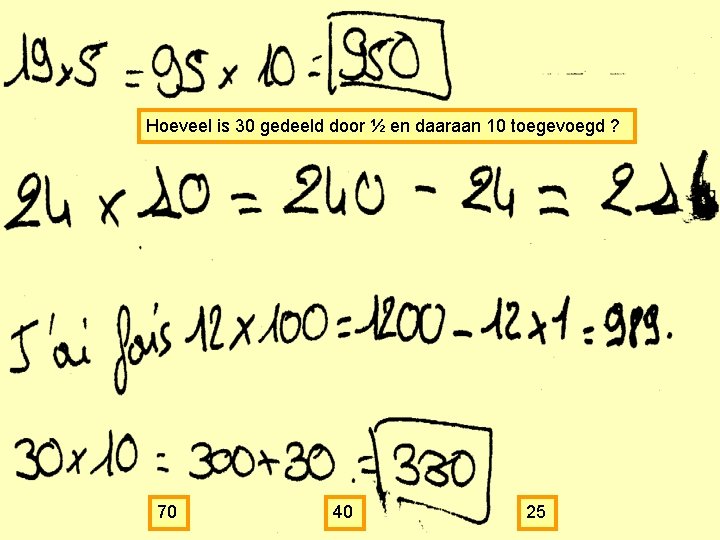 19 x 5 = 95 x 10 = 950
Hoeveel is 30 gedeeld door ½ en daaraan 10 toegevoegd ?
24 x 10 = 240 - 24 = 216
J'ai fois 12 x 100 = 1200 - 12 x 1 = 989.
30 x 10 = 300 + 30 = 330
70 40 25